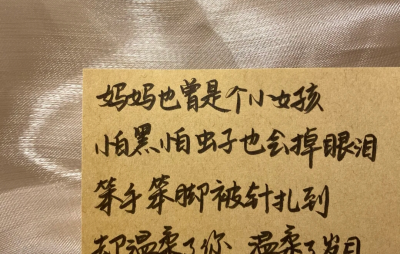 妈妈也曾是个小女孩
怕黑怕虫子也会掉眼泪
笨手笨脚被针扎到
却温柔了你 温柔了岁月